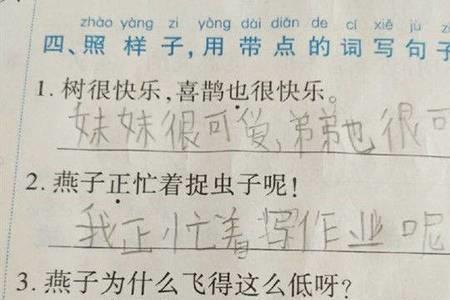 zhào yàng zi yòng dài diǎn de cí xiě jù
四、照样子,用带点的词写句子
1. 树很快乐,喜鹊也很快乐。
妹妹很可爱,弟弟也很可
2. 燕子正忙着捉虫子呢!
我正忙着写作业呢
3. 燕子为什么飞得这么低呀?